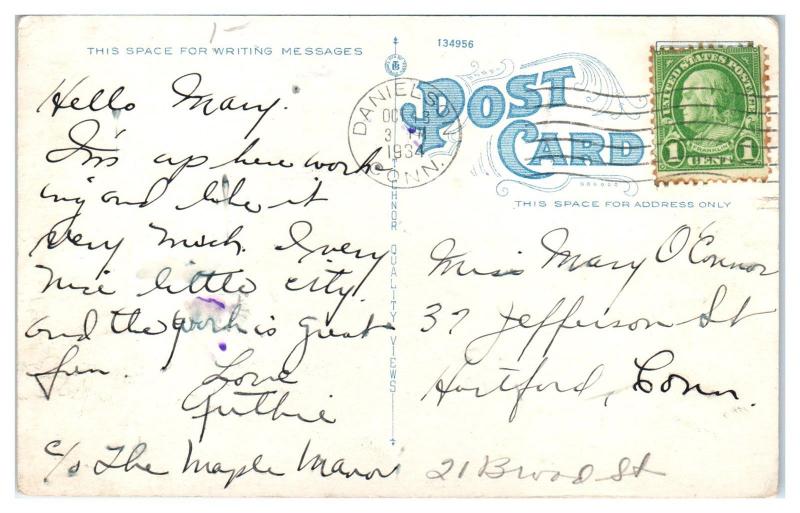 1-
THIS SPACE FOR WRITING MESSAGES
134956
POST
CARD
THIS SPACE FOR ADDRESS ONLY
DANIELSO
OCT
3 PM
1934
CONN.
UNITED STATES POSTAGE
FRANKLIN
1 CENT 1
TICHNOR QUALITY VIEWS
Hello Mary.
I'm up here work-
ing and like it
very much. A very
nice little city.
and the work is great
fun. Love
Ruthie
c/o The Maple Manor
Miss Mary O'Connor
37 Jefferson St
Hartford, Conn.
21 Broad St